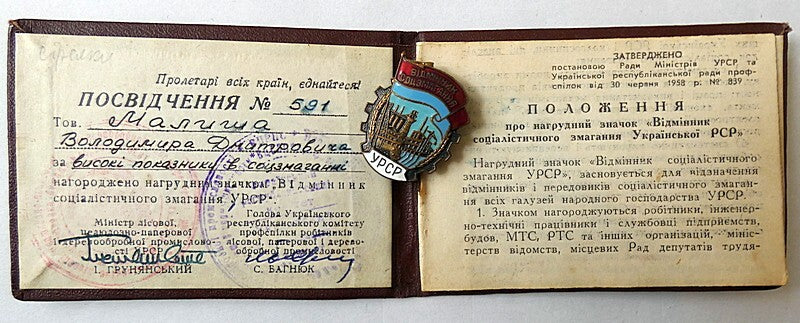 Пролетарі всіх країн, єднайтеся!
ПОСВІДЧЕННЯ № 591
Тов. Малиша
Володимира Дмитровича
за високі показники в соцзмаганні
нагороджено нагрудним значком Відмінник
соціалістичного змагання УРСР
Міністр лісової,
целюлозно-паперової
і деревообробної промислово-
сті УРСР
І. ГРУНЯНСЬКИЙ
Голова Українського
республіканського комітету
профспілки робітників
лісової, паперової і дерево-
обробної промисловості
С. БАГНЮК
ВІДМІННИК
СОЦЗМАГАННЯ
УРСР
ЗАТВЕРДЖЕНО
постановою Ради Міністрів УРСР та
Української республіканської ради проф-
спілок від 30 червня 1958 р. № 839
ПОЛОЖЕННЯ
про нагрудний значок «Відмінник
соціалістичного змагання Української РСР»
Нагрудний значок «Відмінник соціалістичного
змагання УРСР», засновується для відзначення
відмінників і передовиків соціалістичного змаган-
ня всіх галузей народного господарства УРСР.
1. Значком нагороджуються робітники, інженер-
но-технічні працівники і службовці підприємств,
будов, МТС, РТС та інших організацій, мініс-
терств відомств, місцевих Рад депутатів трудя-